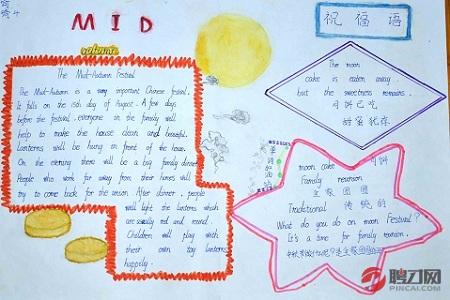 MID
autumn
The Mid-Autumn Festival
The Mid-Autumn is a very important Chinese festival.
It falls on the 15th day of August. A few days
before the festival, everyone in the family will
help to make the house clean and beautiful.
Lanterns will be hung in front of the house.
On the evening there will be a big family dinner.
People who work far away from their homes will
try to come back for the union. After dinner, people
will light the lanterns which
are usually red and round.
Children will play with
their own toy lanterns
happily.
祝福语
The moon
cake is eaten away
but the sweetness remains.
月饼已吃
甜蜜犹存
moon cake 月饼
Family reunion
全家团圆
Traditional 传统的
What do you do on moon Festival?
It's a time for family reunion.
聘才网
PINCAI.COM